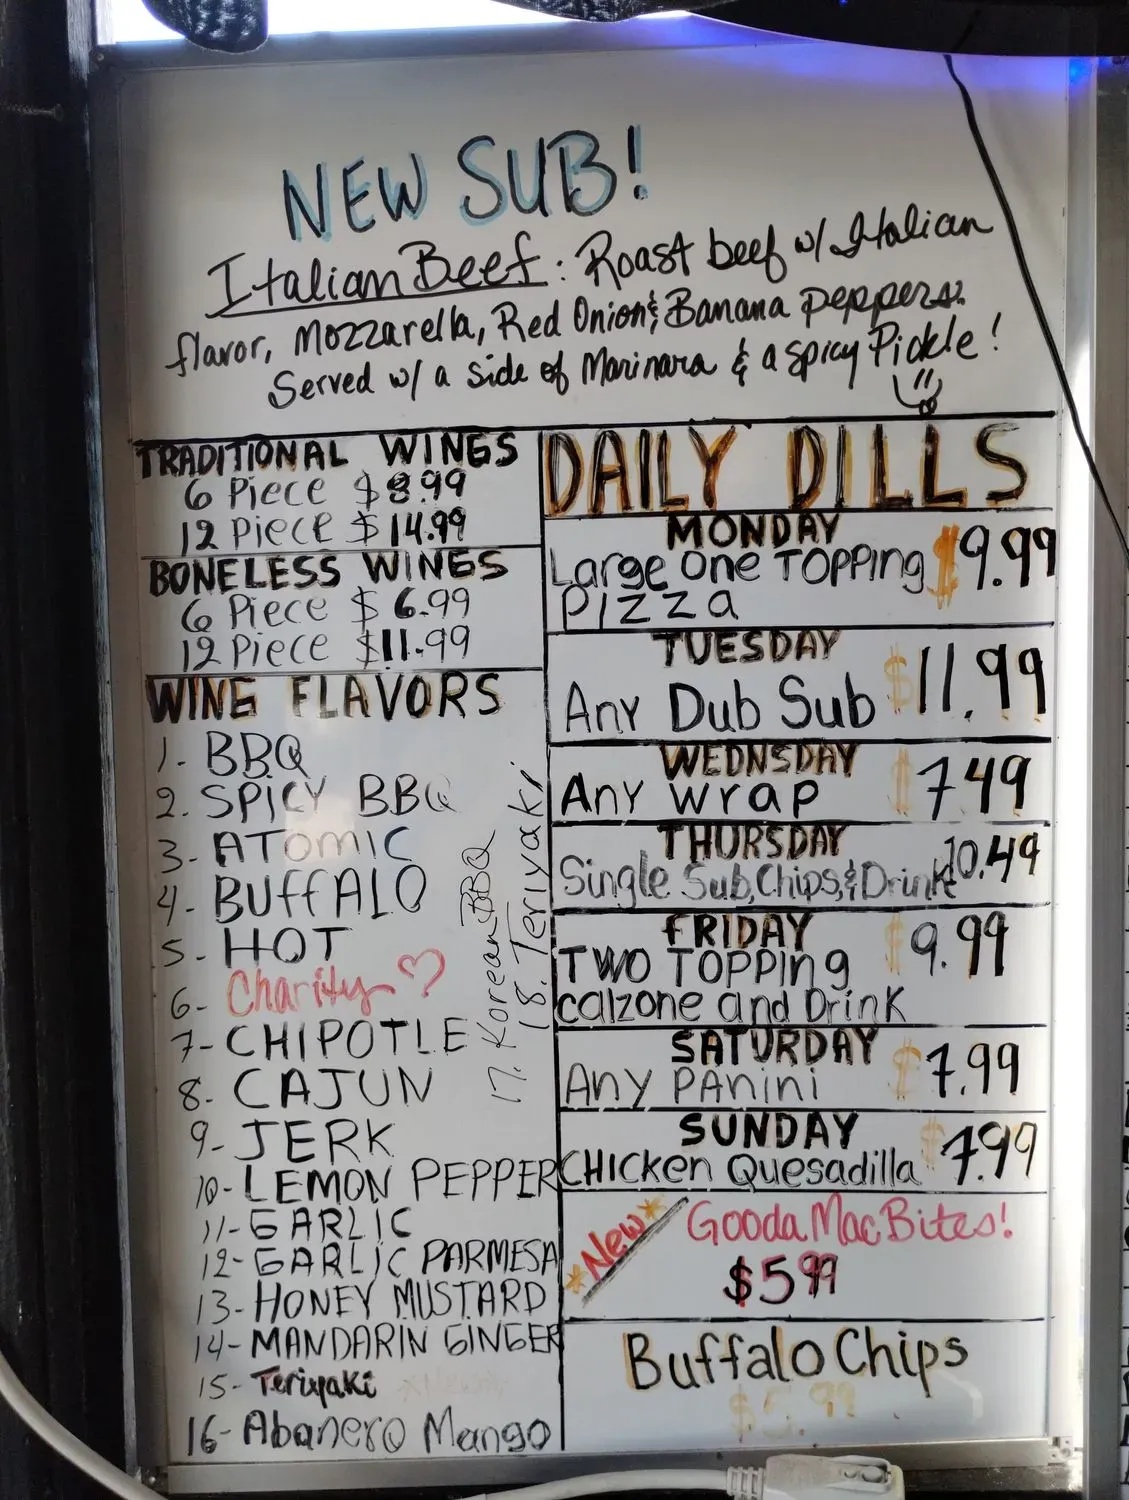 NEW SUB!
Italian Beef: Roast beef w/ Italian
flavor, Mozzarella, Red Onion & Banana peppers.
Served w/ a side of Marinara & a spicy Pickle!
TRADITIONAL WINGS
6 Piece $8.99
12 Piece $14.99
BONELESS WINGS
6 Piece $6.99
12 Piece $11.99
WING FLAVORS
1. BBQ
2. SPICY BBQ
3- ATOMIC
4- BUFFALO
5- HOT
6- Charity
7- CHIPOTLE
8- CAJUN
9- JERK
10- LEMON PEPPER
11- GARLIC
12- GARLIC PARMESA
13- HONEY MUSTARD
14- MANDARIN GINGER
15- Teriyaki
16- Abanero Mango
17. Korean BBQ
18. Teriyaki
DAILY DILLS
MONDAY
Large One TOPPing $9.99
Pizza
TUESDAY
Any Dub Sub $11.99
WEDNSDAY
Any wrap $7.49
THURSDAY
Single Sub, Chips, & Drink 10.49
FRIDAY
TWO TOPPing $9.99
calzone and Drink
SATURDAY
Any PAnini $7.99
SUNDAY
CHICKen Quesadilla $7.99
*New* Gooda Mac Bites!
$5.99
Buffalo Chips